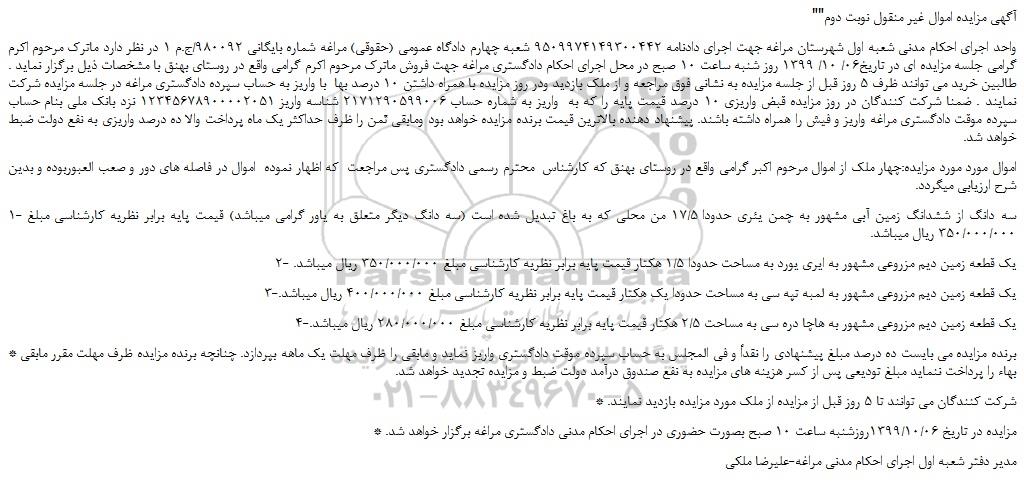 آگهی مزایده اموال غیر منقول نوبت دوم""
واحد اجرای احکام مدنی شعبه اول شهرستان مراغه جهت اجرای دادنامه ۹۵۰۹۹۷۴۱۴۹۳۰۰۴۴۲ شعبه چهارم دادگاه عمومی (حقوقی) مراغه شماره بایگانی ۹۸۰۰۹۲/ج.م ۱ در نظر دارد ماترک مرحوم اکرم
گرامی جلسه مزایده ای در تاریخ۰۶/ ۱۰/ ۱۳۹۹ روز شنبه ساعت ۱۰ صبح در محل اجرای احکام دادگستری مراغه جهت فروش ماترک مرحوم اکرم گرامی واقع در روستای بهنق با مشخصات ذیل برگزار نماید .
طالبین خرید می توانند ظرف ۵ روز قبل از جلسه مزایده به نشانی فوق مراجعه و از ملک بازدید ودر روز مزایده با همراه داشتن ۱۰ درصد بها با واریز به حساب سپرده دادگستری مراغه در جلسه مزایده شرکت
نمایند . ضمنا شرکت کنندگان در روز مزایده قبض واریزی ۱۰ درصد قیمت پایه را که به واریز به شماره حساب ۲۱۷۱۲۹۰۵۹۹۰۰۶ شناسه واریز ۱۲۳۴۵۶۷۸۹۰۰۰۰۰۲۰۵۱ نزد بانک ملی بنام حساب
سپرده موقت دادگستری مراغه واریز و فیش را همراه داشته باشند. پیشنهاد دهنده بالاترین قیمت برنده مزایده خواهد بود ومابقی ثمن را ظرف حداکثر یک ماه پرداخت والا ده درصد واریزی به نفع دولت ضبط
خواهد شد.
اموال مورد مورد مزایده:چهار ملک از اموال مرحوم اکبر گرامی واقع در روستای بهنق که کارشناس محترم رسمی دادگستری پس مراجعت که اظهار نموده اموال در فاصله های دور و صعب العبوربوده و بدین
شرح ارزیابی میگردد.
سه دانگ از ششدانگ زمین آبی مشهور به چمن یئری حدودا ۱۷/۵ من محلی که به باغ تبدیل شده است (سه دانگ دیگر متعلق به یاور گرامی میباشد) قیمت پایه برابر نظریه کارشناسی مبلغ ۱-
۳۵۰/۰۰۰/۰۰۰ ریال میباشد.
یک قطعه زمین دیم مزروعی مشهور به ایری یورد به مساحت حدودا ۱/۵ هکتار قیمت پایه برابر نظریه کارشناسی مبلغ ۳۵۰/۰۰۰/۰۰۰ ریال میباشد. ۲-
یک قطعه زمین دیم مزروعی مشهور به لمبه تپه سی به مساحت حدودا یک هکتار قیمت پایه برابر نظریه کارشناسی مبلغ ۴۰۰/۰۰۰/۰۰۰ ریال میباشد.۳-
یک قطعه زمین دیم مزروعی مشهور به هاچا دره سی به مساحت ۲/۵ هکتار قیمت پایه برابر نظریه کارشناسی مبلغ ۲۸۰/۰۰۰/۰۰۰ ریال میباشد.۴-
برنده مزایده می بایست ده درصد مبلغ پیشنهادی را نقداً و فی المجلس به حساب سپرده موقت دادگستری واریز نماید و مابقی را ظرف مهلت یک ماهه بپردازد. چنانچه برنده مزایده ظرف مهلت مقرر مابقی *
بهاء را پرداخت ننماید مبلغ تودیعی پس از کسر هزینه های مزایده به نفع صندوق درآمد دولت ضبط و مزایده تجدید خواهد شد.
شرکت کنندگان می توانند تا ۵ روز قبل از مزایده از ملک مورد مزایده بازدید نمایند. *
مزایده در تاریخ ۱۳۹۹/۱۰/۰۶روزشنبه ساعت ۱۰ صبح بصورت حضوری در اجرای احکام مدنی دادگستری مراغه برگزار خواهد شد. *
مدیر دفتر شعبه اول اجرای احکام مدنی مراغه-علیرضا ملکی
ParsNamadData
۰۲۱-۸۸۳۴۹۶۷۰-۵